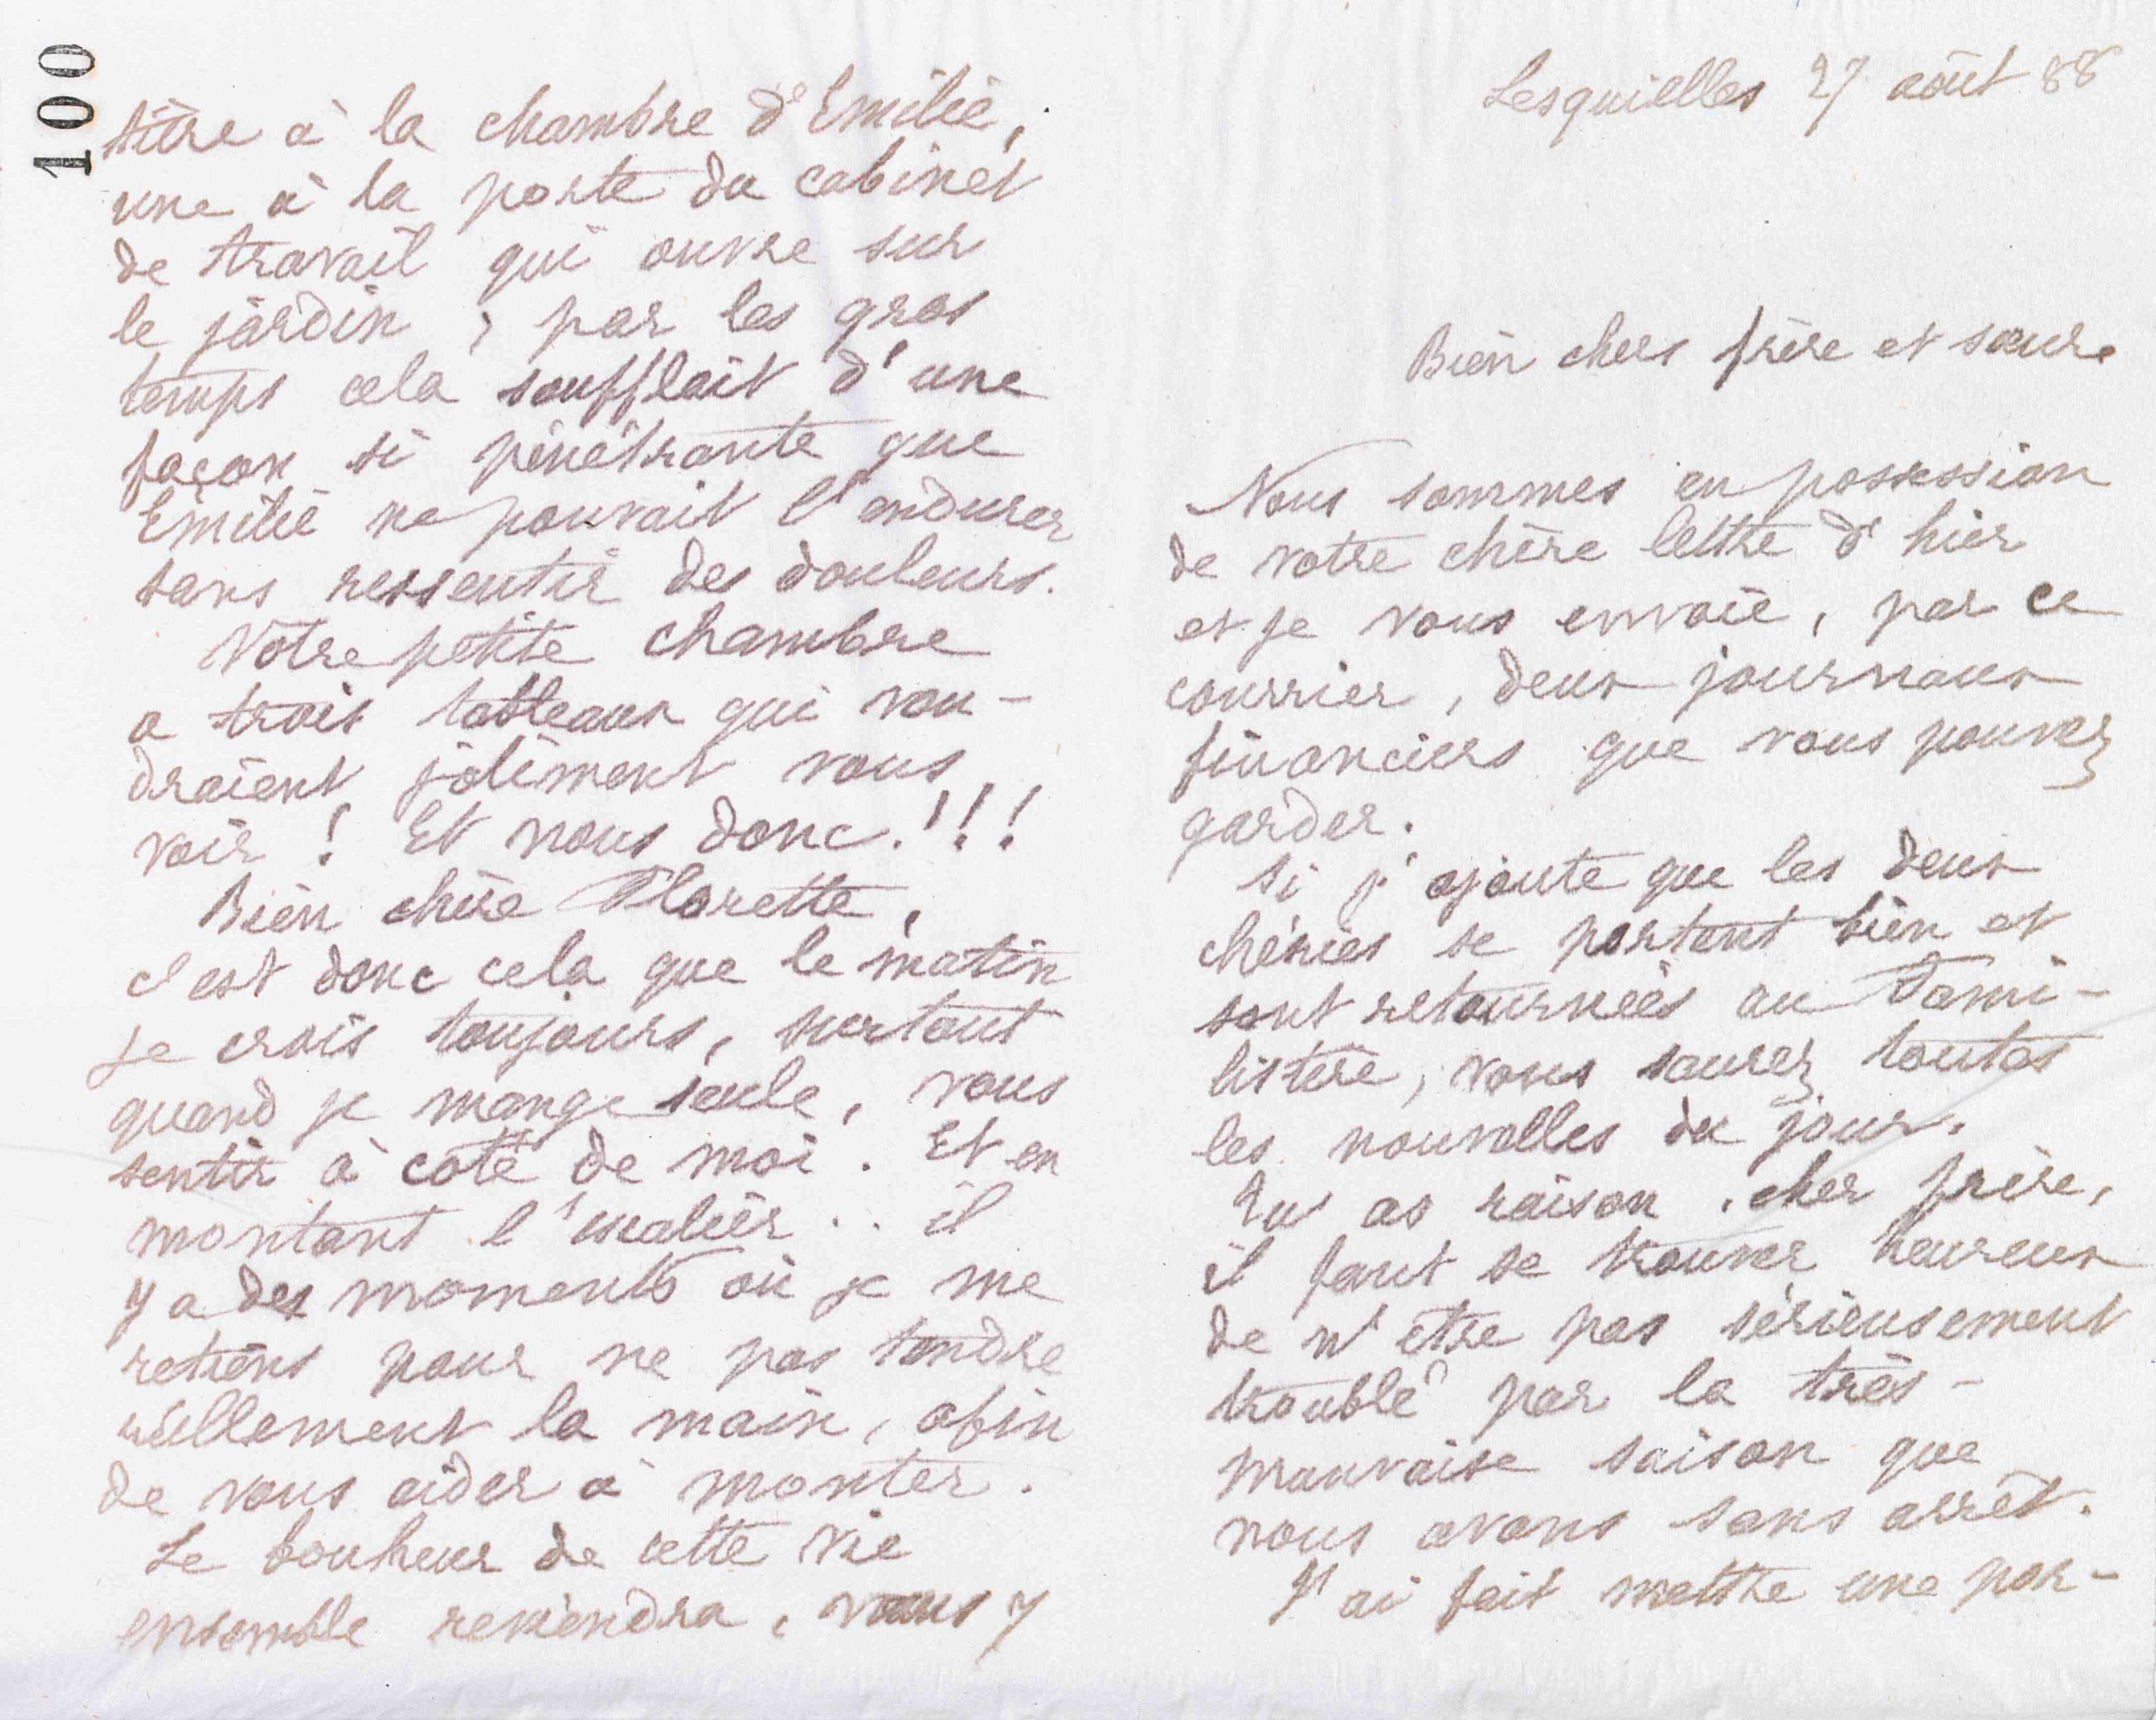 100
Lesquielles 27 août 88
Bien chers frère et sœur.
Nous sommes en possession
de votre chère lettre d'hier
et je vous envoie, par ce
courrier, deux journaux
financiers que vous pouvez
garder.
Si j'ajoute que les deux
chéries se portent bien et
sont retournées au Fami-
listère, vous saurez toutes
les nouvelles du jour.
Tu as raison, cher frère,
il faut se trouver heureux
de n'être pas sérieusement
troublé par la très-
mauvaise saison que
nous avons sans arrêt.
J'ai fait mettre une por-
tière à la chambre d'Emilie,
une à la porte du cabinet
de travail qui ouvre sur
le jardin ; par les gros
temps cela soufflait d'une
façon si pénétrante que
Emilie ne pouvait l'endurer
sans ressentir des douleurs.
Votre petite chambre
a trois tableaux qui vou-
draient joliment vous
voir ! Et nous donc !!!
Bien chère Florette,
c'est donc cela que le matin
je crois toujours, surtout
quand je mange seule, vous
sentir à côté de moi. Et en
montant l'escalier .. il
y a des moments où je me
retiens pour ne pas tendre
réellement la main, afin
de vous aider à monter.
Le bonheur de cette vie
ensemble reviendra, vous y